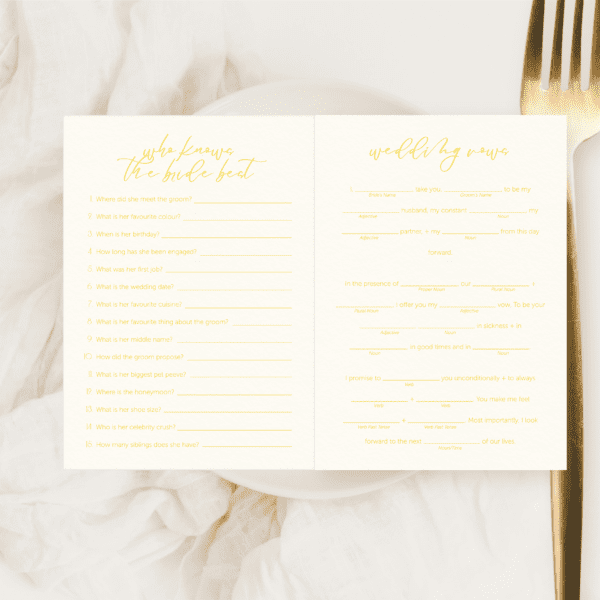 who knows
the bride best
1. Where did she meet the groom?
2. What is her favourite colour?
3. When is her birthday?
4. How long has she been engaged?
5. What was her first job?
6. What is the wedding date?
7. What is her favourite cuisine?
8. What is her favourite thing about the groom?
9. What is her middle name?
10. How did the groom propose?
11. What is her biggest pet peeve?
12. Where is the honeymoon?
13. What is her shoe size?
14. Who is her celebrity crush?
15. How many siblings does she have?
wedding vows
I take you to be my
Bride's Name Groom's Name
husband, my constant my
Adjective Noun
partner, + my from this day
Adjective Noun
forward.
In the presence of our +
Plural Noun
Plural Noun I offer you my vow. To be your
Adjective
in sickness + in
Adjective Noun
in good times and in
Noun Noun
I promise to you unconditionally + to always
Verb
+ . You make me feel
Verb Verb
+ . Most importantly, I look
forward to the next of our lives.
Period Time